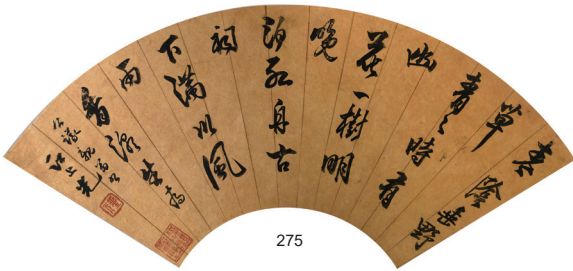 春陰垂野
草
青々時有
幽
花一樹明
晚
泊孤舟古
祠
下滿川風
雨
看潮生
江上光
275